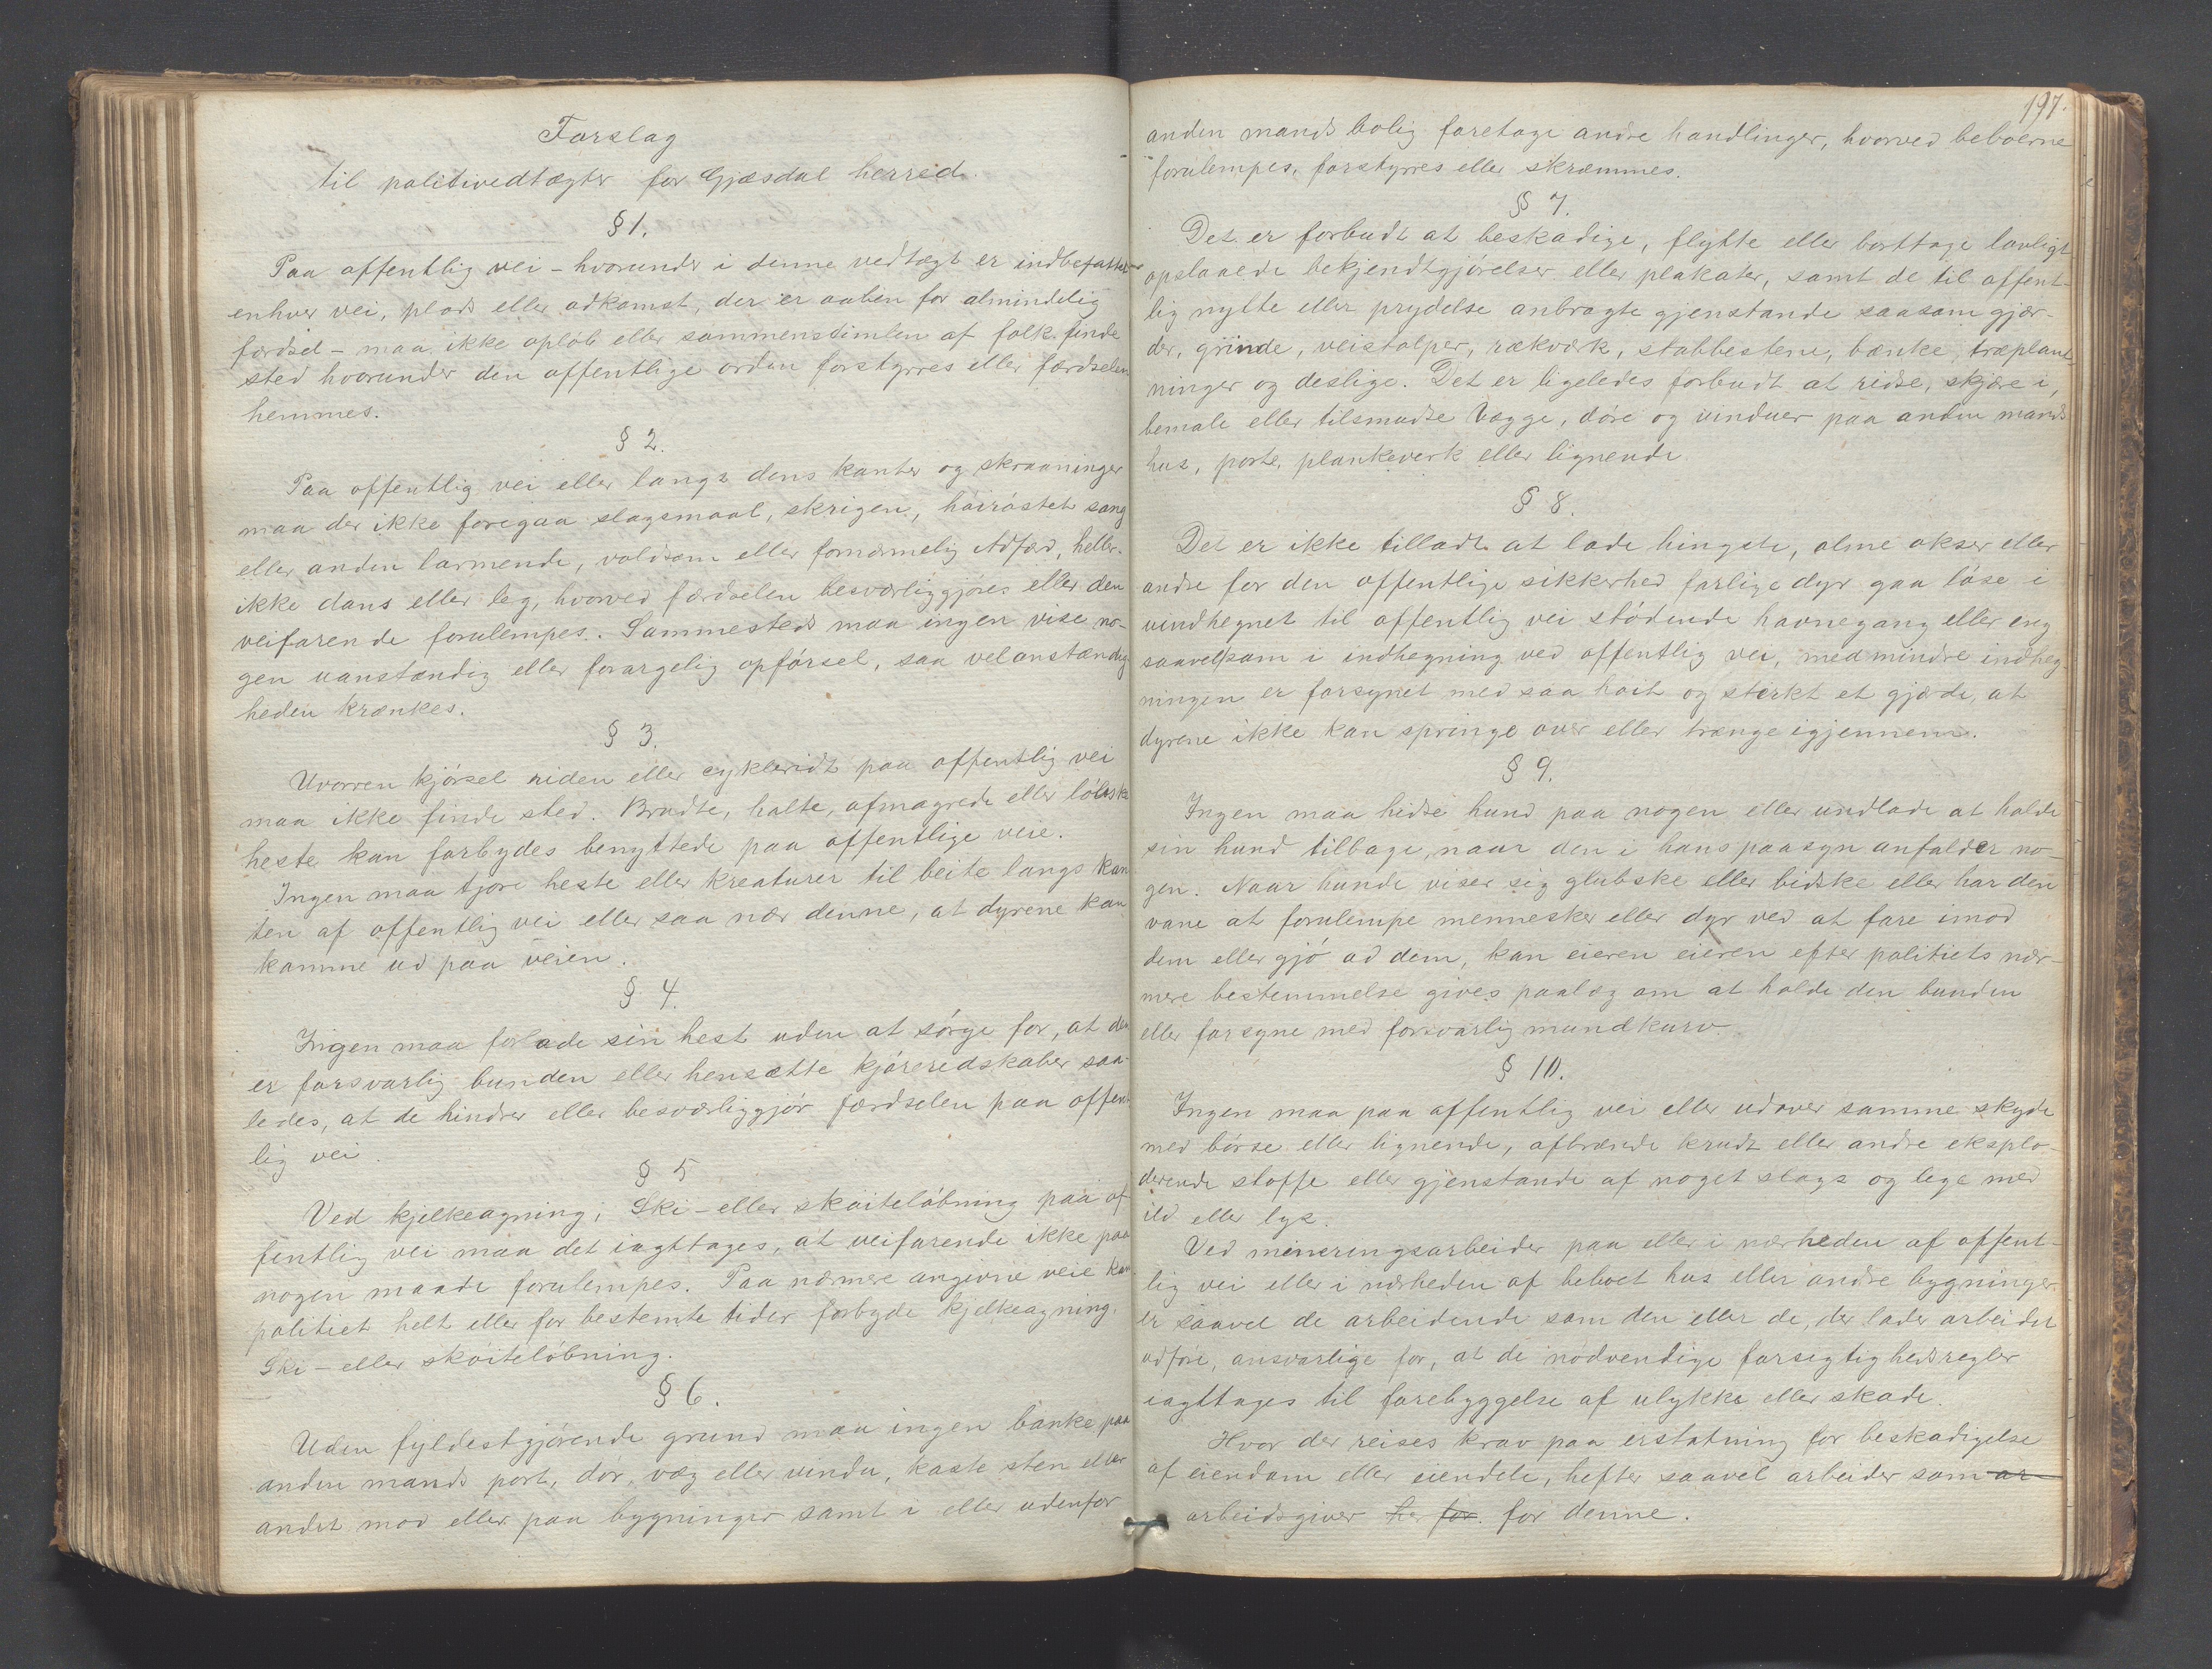 Forslag
til politivedtægter for Gjæsdal herred.
§ 1.
Paa offentlig vei – hvorunder i denne vedtægt er indbefattet
enhver vei, plads eller adkomst, der er aaben for almindelig
færdsel – maa ikke opløb eller sammenstimlen af folk finde
sted hvorunder den offentlige orden forstyrres eller færdselen
hemmes.
§ 2.
Paa offentlig vei eller langs dens kanter og skraaninger
maa der ikke foregaa slagsmaal, skrigen, høirøstet sang
eller anden larmende, voldsom eller fornærmelig Adfærd, heller-
ikke dans eller leg, hvorved færdselen besværliggjøres eller den
veifarende forulempes. Sammesteds maa ingen vise no-
gen uanstændig eller forargelig opførsel, saa velanstændig
heden krænkes.
§ 3.
Uvorren kjørsel riden eller cykleridt paa offentlig vei
maa ikke finde sted. Brudte, halte, afmagrede eller lølske
heste kan forbydes benyttede paa offentlige veie.
Ingen maa tjore heste eller kreaturer til beite langs kan
ten af offentlig vei eller saa nær denne, at dyrene kan
komme ud paa veien.
§ 4.
Ingen maa forlade sin hest uden at sørge for, at den
er forsvarlig bunden eller hensætte kjøreredskaber saa-
ledes, at de hindrer eller besværliggjør færdselen paa offent-
lig vei.
§ 5
Ved kjelkeagning, Ski- eller skøiteløbning paa of-
fentlig vei maa det iagttages, at veifarende ikke paa
nogen maade forulempes. Paa nærmere angivne veie kan
politiet helt eller for bestemte tider forbyde kjelkeagning,
Ski- eller skøiteløbning.
§ 6.
Uden fyldestgjørende grund maa ingen banke paa
anden mands port, dør, væg eller vindu, kaste sten eller
andet mod eller paa bygninger samt i eller udenfor
197.
anden mands bolig foretage andre handlinger, hvorved beboerne
forulempes, forstyrres eller skræmmes.
§ 7.
Det er forbudt at beskadige, flytte eller borttage lovligt
opslaaede bekjendtgjørelser eller plakater, samt de til offent-
lig nytte eller prydelse anbragte gjenstande saasom gjær-
der, grinde, veistolper, rækværk, stabbestene, bænke, træplant
ninger og deslige. Det er ligeledes forbudt at ridse, skjære i,
bemale eller tilsmudse Vægge, døre og vinduer paa anden mands
hus, porte, plankeverk eller lignende
§ 8.
Det er ikke tilladt at lade hingste, olme okser eller
andre for den offentlige sikkerhed farlige dyr gaa løse i
uindhegnet til offentlig vei stødende havnegang eller eng
saavelsom i indhegning ved offentlig vei, medmindre indheg
ningen er forsynet med saa høit og sterkt et gjærde, at
dyrene ikke kan springe over eller trænge igjennem.
§ 9.
Ingen maa hidse hund paa nogen eller undlade at holde
sin hund tilbage, naar den i hans paasyn anfalder no-
gen. Naar hunde viser sig glubske eller bidske eller har den
vane at forulempe mennesker eller dyr ved at fare imod
dem eller gjø ad dem, kan eieren eieren efter politiets nær-
mere bestemmelse gives paalæg om at holde den bunden
eller forsyne med forsvarlig mundkurv.
§ 10.
Ingen maa paa offentlig vei eller udover samme skyde
med børse eller lignende, afbrænde krudt eller andre eksplo-
derende stoffe eller gjenstande af noget slags og lege med
ild eller lys.
Ved mineringsarbeider paa eller i nærheden af offent-
lig vei eller i nærheden af beboet hus eller andre bygninger
er saavel de arbeidende som den eller de, der lader arbeidet
udføre, ansvarlige for, at de nødvendige forsigtighedsregler
iagttages til forebyggelse af ulykke eller skade.
Hvor der reises krav paa erstatning for beskadigelse
af eiendom eller eiendele, hefter saavel arbeider som ar-
arbeidsgiver her for. for denne.